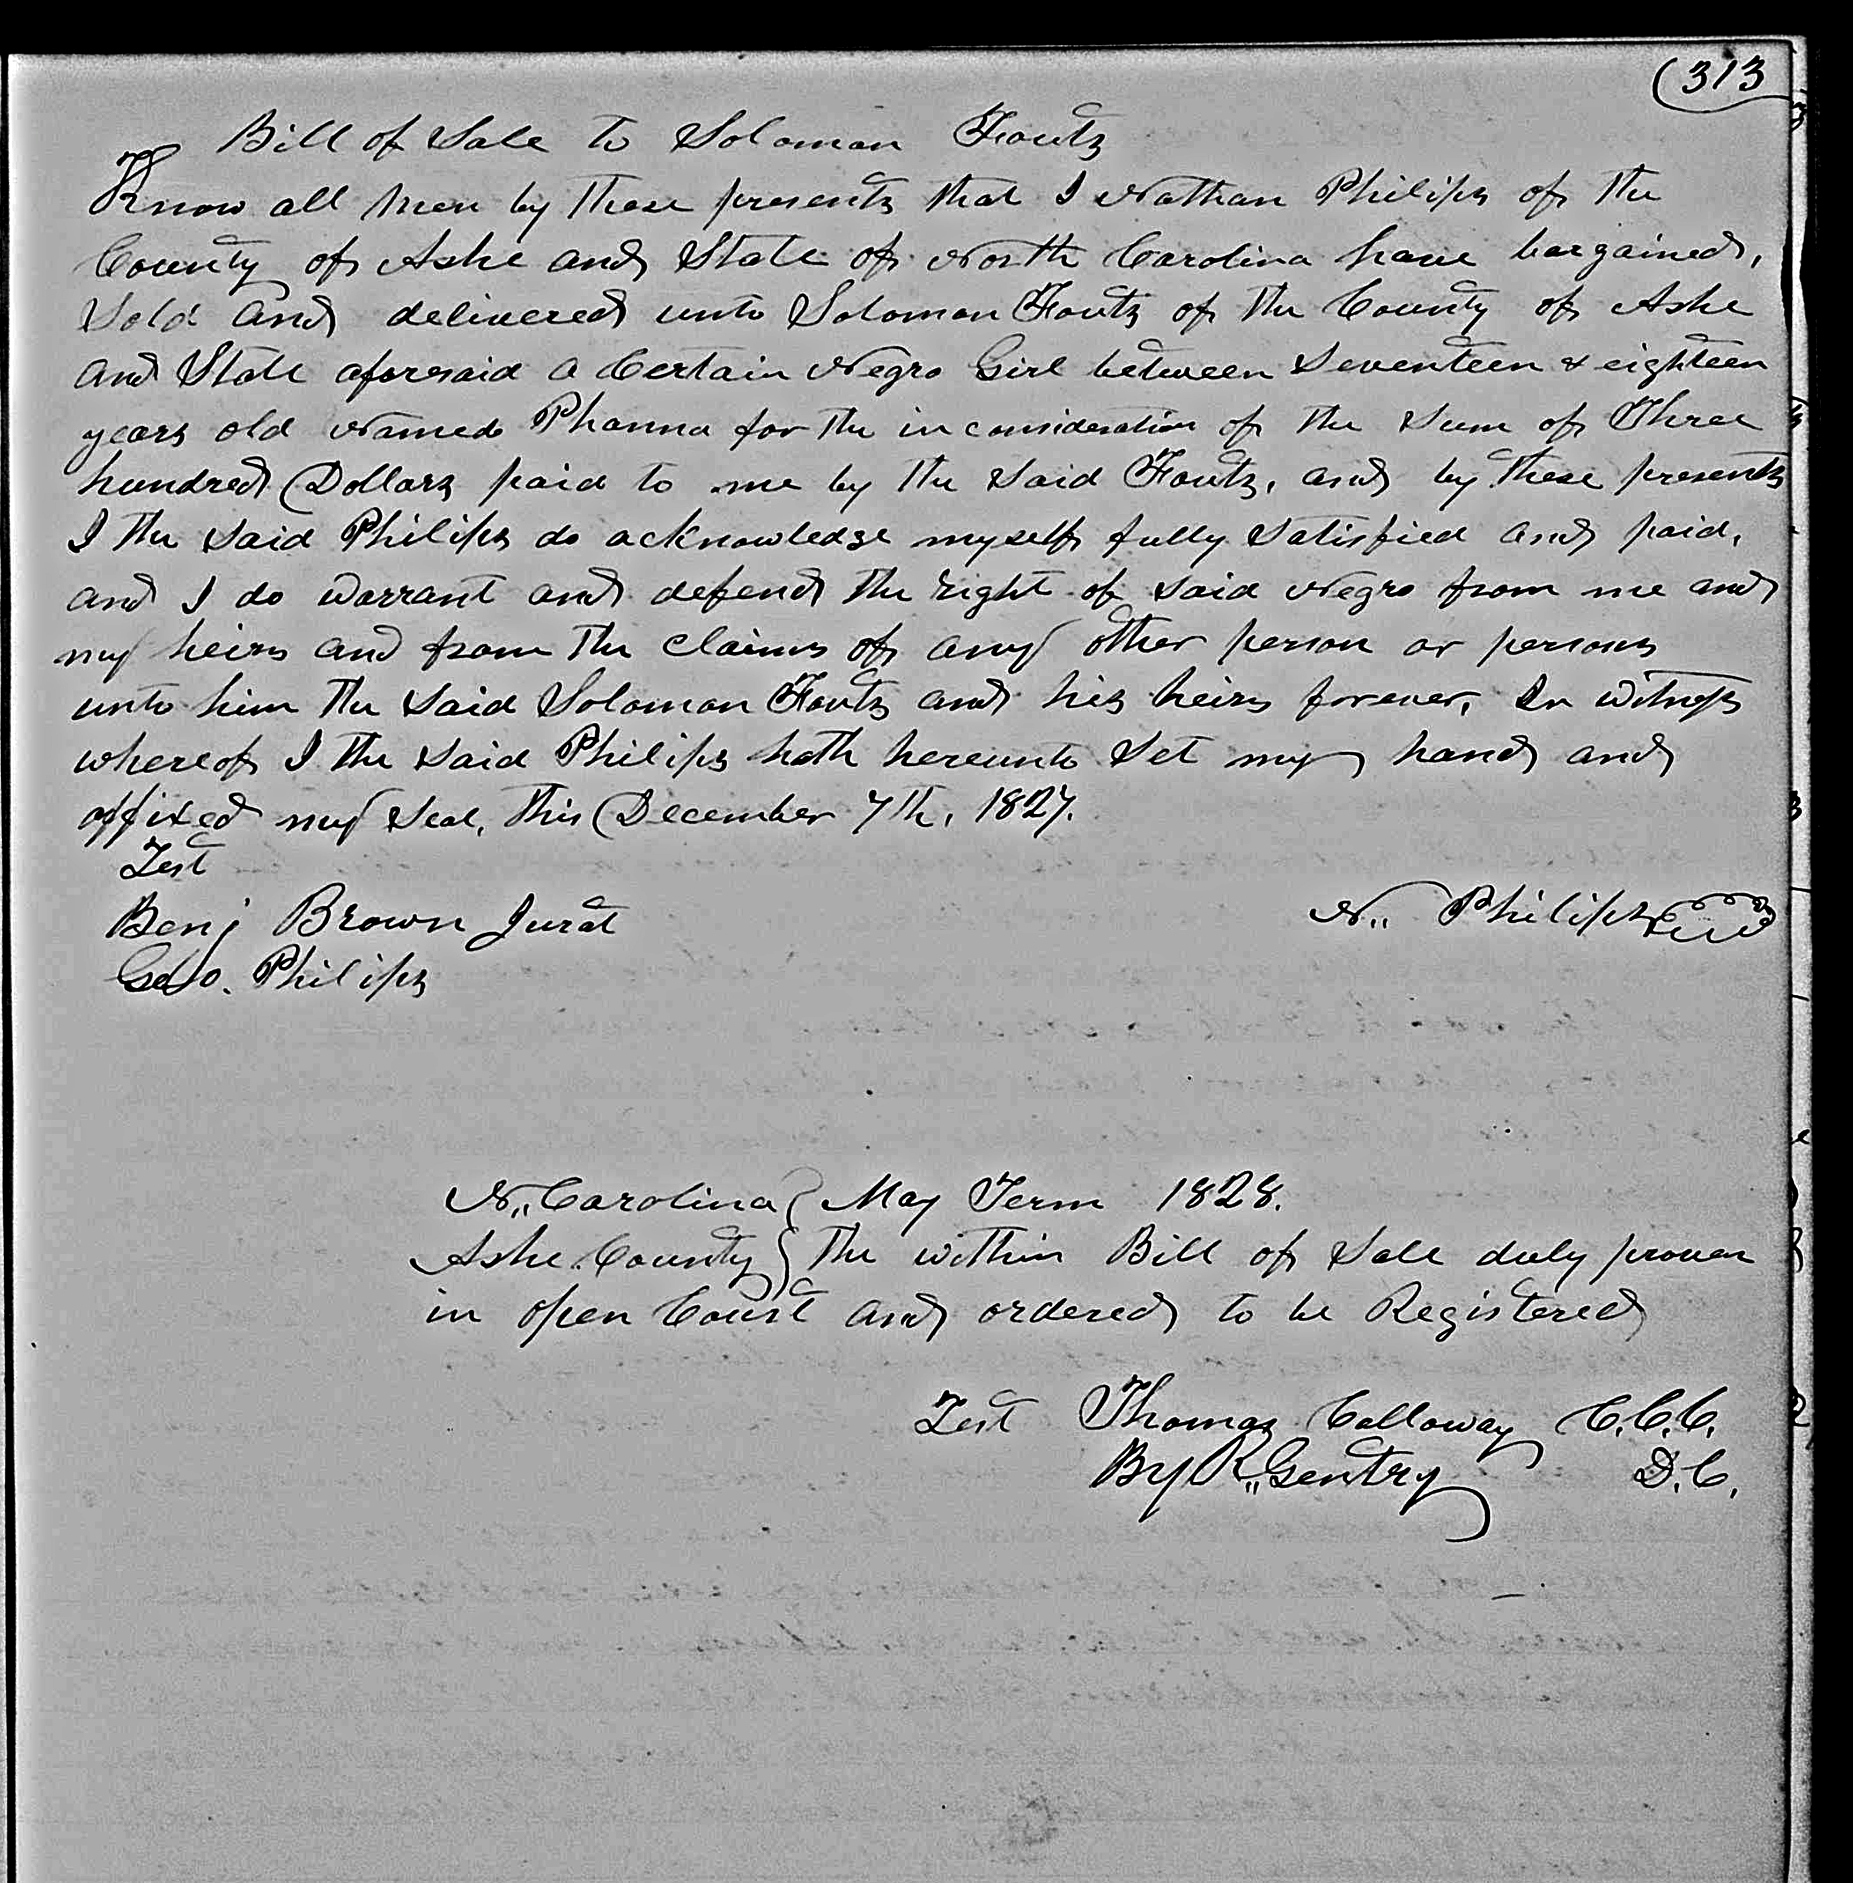 (313
Bill of Sale to Soloman Foutz
Know all Men by these presents that I Nathan Philips of the
County of Ashe and State of North Carolina have bargained,
Sold and delivered unto Soloman Foutz of the County of Ashe
and State aforesaid a Certain Negro Girl between Seventeen & eighteen
years old Named Phanna for the in consideration of the Sum of Three
hundred Dollars paid to me by the Said Foutz, and by these presents
I the Said Philips do acknowledge myself fully Satisfied and paid,
and I do warrant and defend the right of Said Negro from me and
my heirs and from the Claims of any other person or persons
unto him the Said Soloman Foutz and his heirs forever, In witness
whereof I the Said Philips hath hereunto Set my hand and
affixed my Seal, this December 7th, 1827.
Test
Benj Brown Jurat N,, Philips
Geo. Philips
N,, Carolina } May Term 1828.
Ashe County } The within Bill of Sale duly proven
in open Court and ordered to be Registered
Test Thomas Calloway C.C.C.
By R,, Gentry D.C.